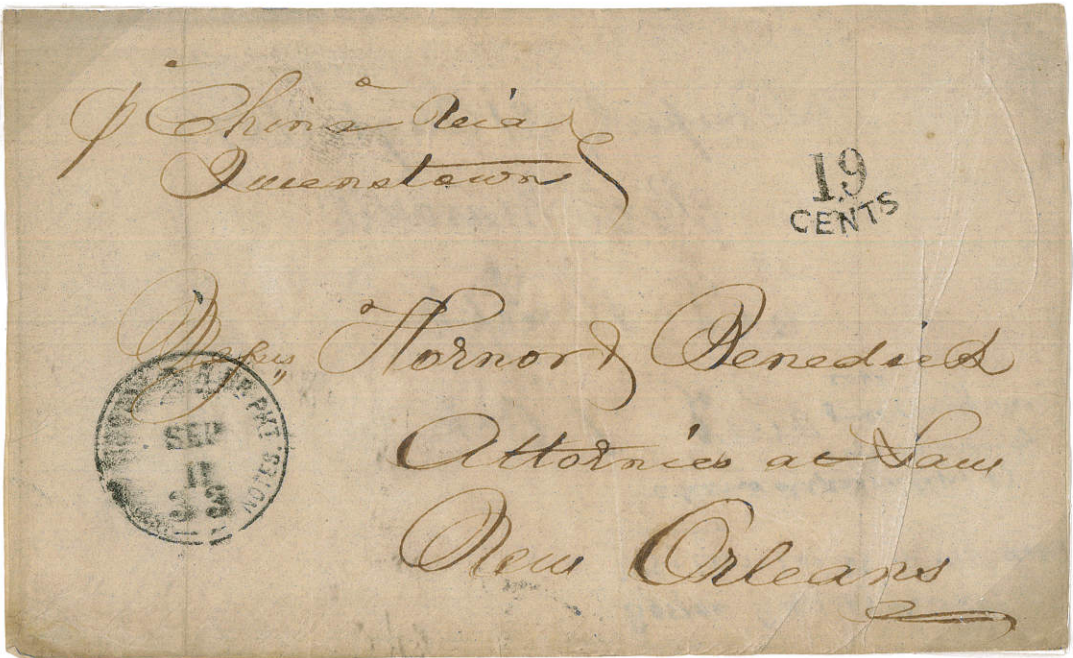 p "China" via
Queenstown
19
CENTS
Messrs Hornor & Benedict
Attornies at Law
New Orleans
BR PKT. NOTES
SEP
11
33